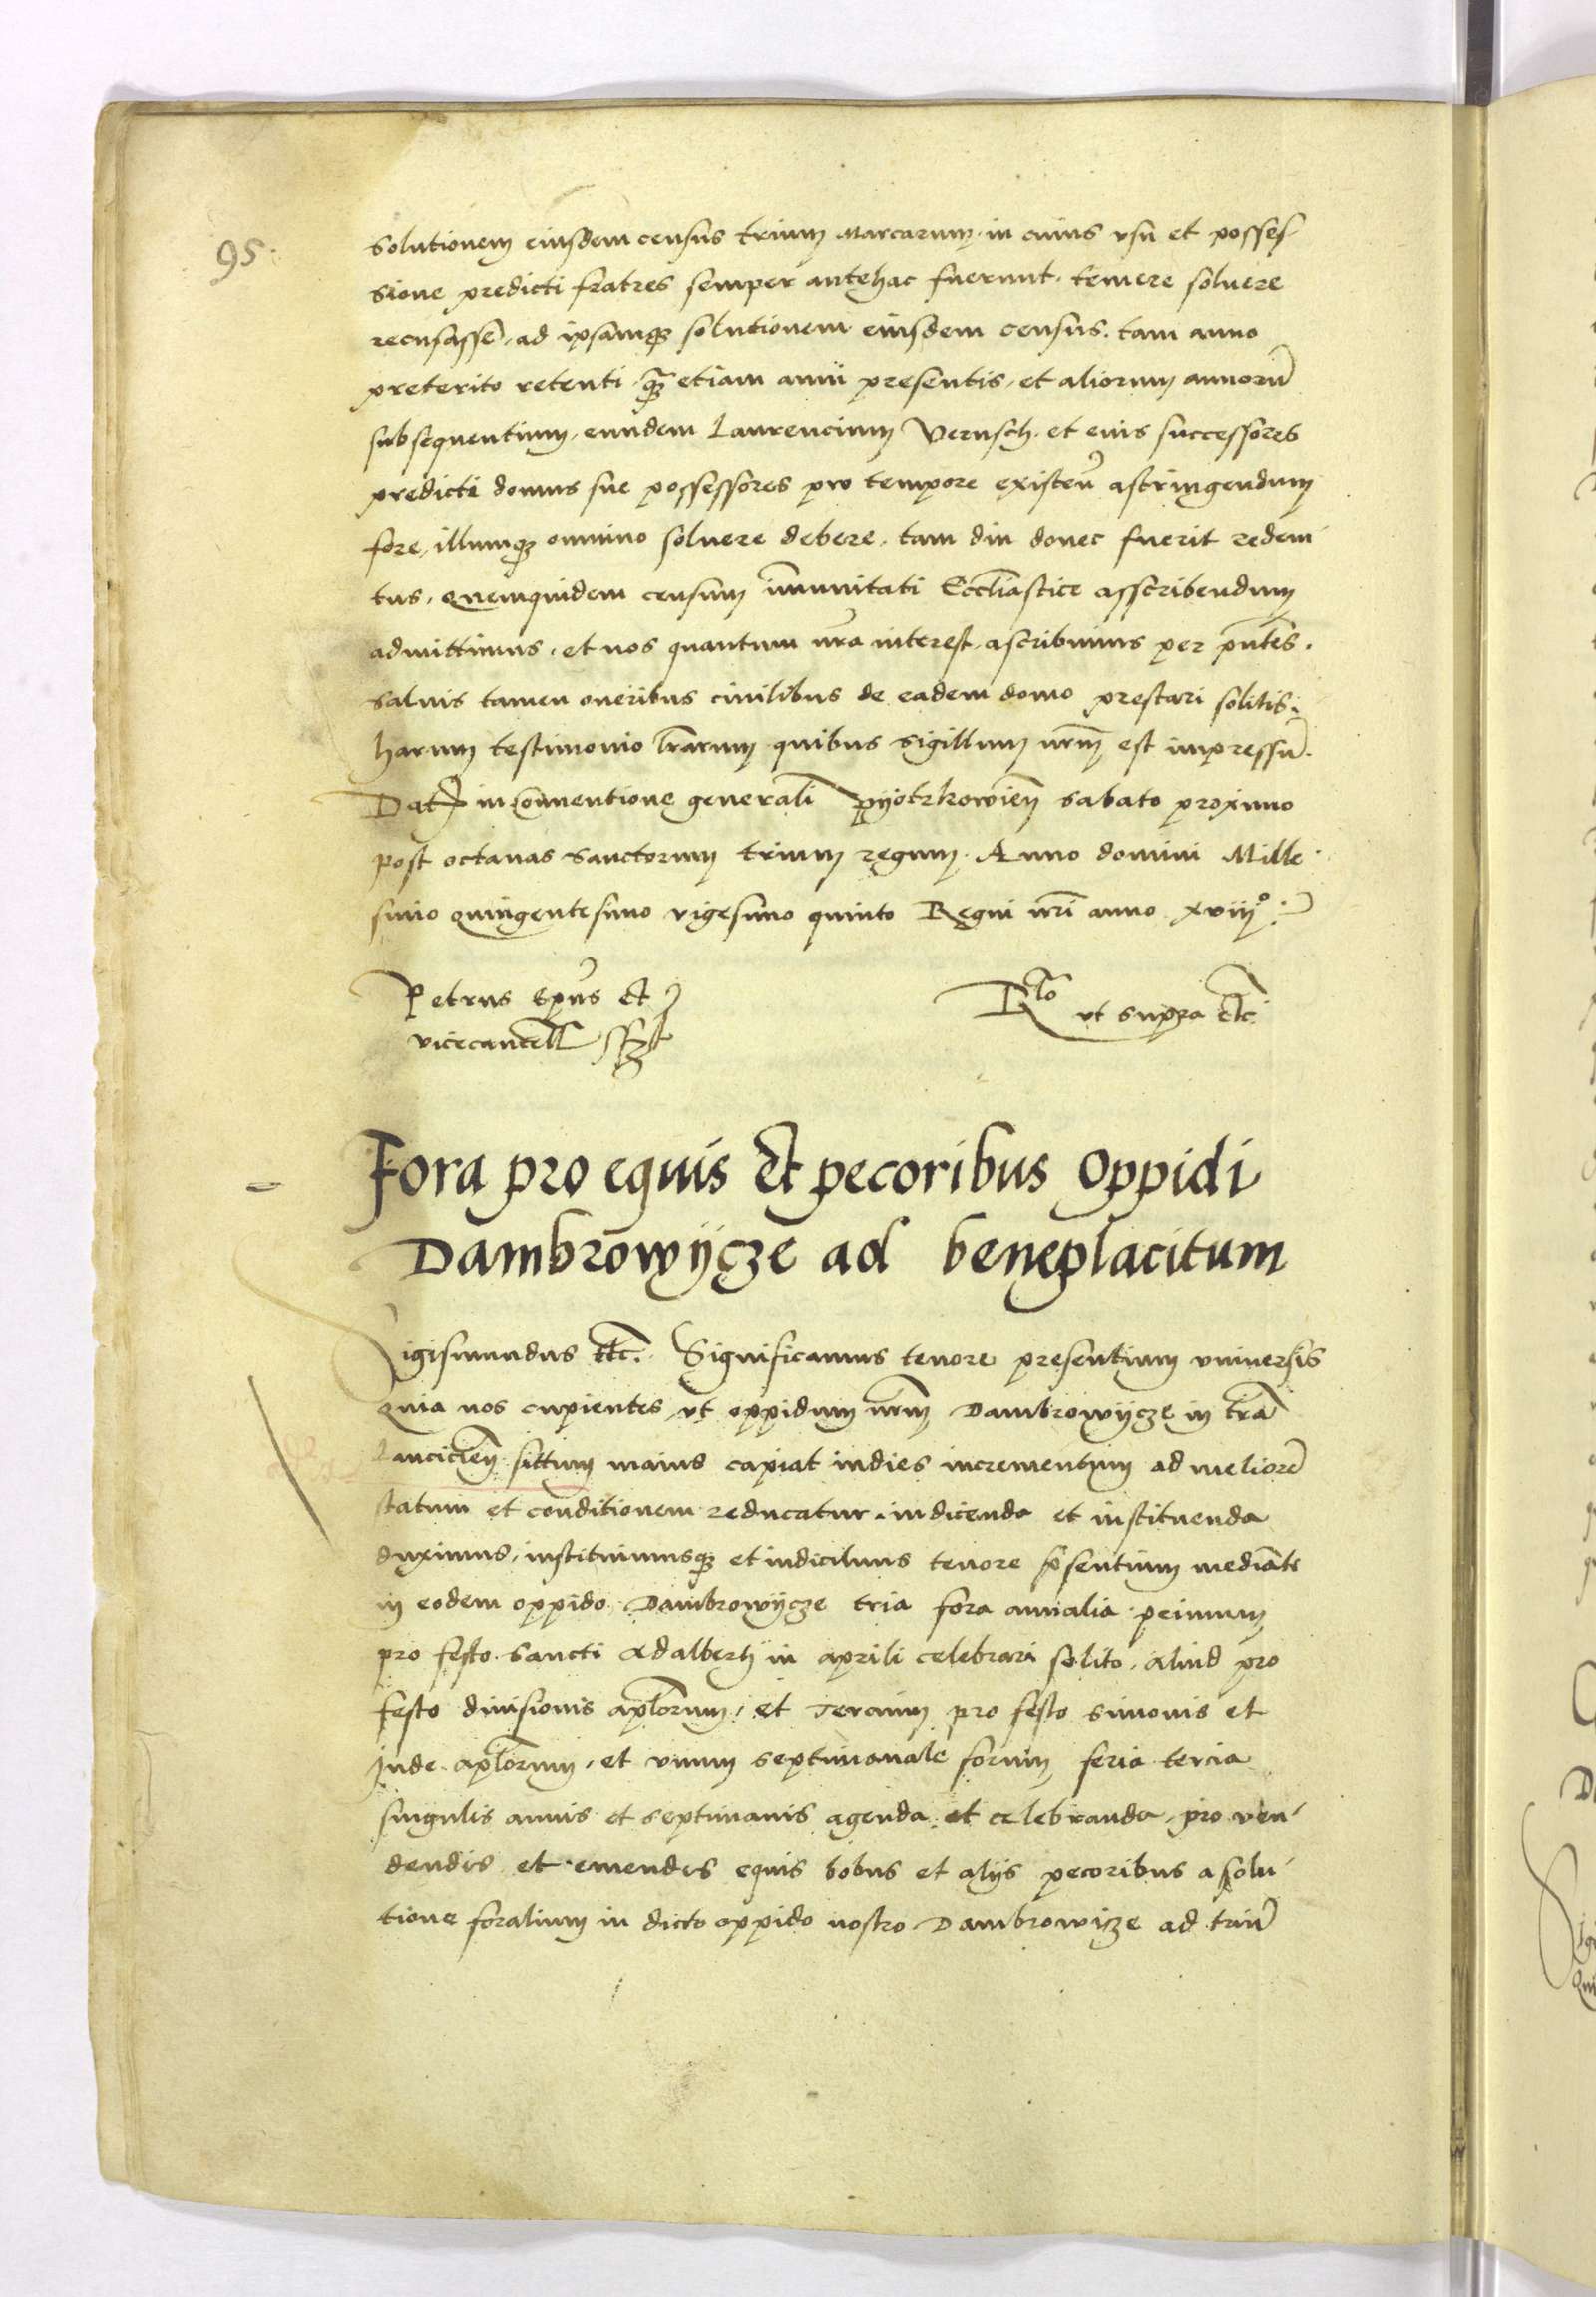 95.
solutionem eiusdem census trium Marcarum. in cuius usu et posses-
sione predicti fratres semper antehac fuerunt. temere soluere
recusasse. ad ipsamq; solutionem eiusdem census. tam anno
preterito retenti. q̃ etiam anni presentis, et aliorum annorũ
subsequentium, eundem Laurencium Verusch. et eius successores
predicte domus sue possessores pro tempore existeñ astringendum
fore, illumq; omnino soluere debere, tam diu donec fuerit redem
tus, quemquidem censum im̃unitati Eccl̃iastice asscribendum
admittimus, et nos quantum nr̃a interest, ascribimus per pñtes.
saluis tamen oneribus ciuilibus de eadem domo prestari solitis.
harum testimonio lr̃arum quibus sigillum nr̃m est impressũ.
Dat̃ in Conuentione generali Pyotrkowieñ sabato proximo
post octauas sanctorum trium regum. Anno domini Mille
simo quingentesimo vigesimo quinto Regni nr̃i anno xviii°:
Petrus Ep̃us et
vicecancell̃ sszt
R̃lo ut supra etc̃
Fora pro equis et pecoribus oppidi
Dambrowycze ad beneplacitum
Sigismundus etc. Significamus tenore presentium vniuersis
quia nos cupientes, vt oppidum nr̃m Dambrowycze in tr̃a
Lancicieñ sittum maius capiat indies incrementum ad meliorẽ
statum et conditionem reducatur. indicenda et instituenda
duximus, instituimusq; et indicimus tenore p̃sentium mediãte
in eodem oppido Dambrowycze tria fora annalia. primum
pro festo sancti Adalberti in aprili celebrari solito, aliud pro
festo diuisionis apl̃orum, et Tercium pro festo simonis et
Jude apl̃orum, et vnum septimanale forum feria tercia
singulis annis et septimanis agenda et celebranda, pro ven-
dendis et emendis equis bobus et alijs pecoribus a solu-
tione foralium in dicto oppido nostro Dambrowicze ad triũ